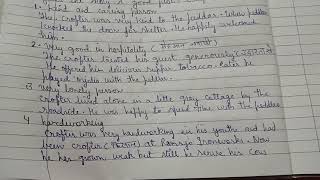 1. Kind and caring person
The crofter was very kind to the peddler. When peddler
knocked the door for shelter. He happily welcomed
him.
2. Very good in hospitality (
The crofter treated his guest generously (
He offered him delicious supper tobacco. Later he
played with the peddler.
3 Very lonely person
Crofter lived alone in a little gray cottage by the
roadside. He was happy to spend time with the peddler
4 hardworking
Crofter was very hardworking in his youth and had
been crofter ( ) at Ramsjo Ironworks. Now
he has grown weak but still he his cows